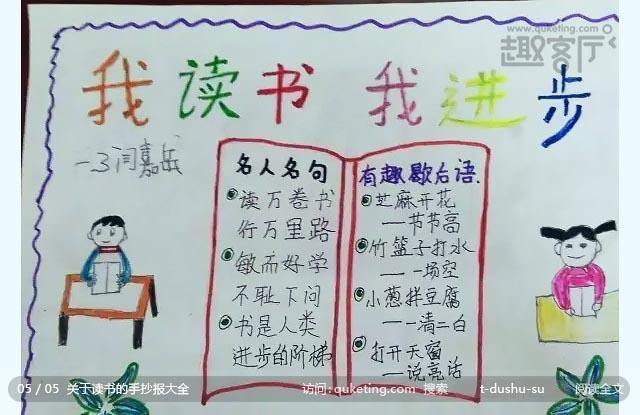 www.quketing.com
趣客厅
我读书 我进步
一3闫嘉岳
名人名句
读万卷书
行万里路
敏而好学
不耻下问
书是人类
进步的阶梯
有趣歇后语.
芝麻开花
——节节高
竹篮子打水
——一场空
小葱拌豆腐
——一清二白
打开天窗
——说亮话
05 / 05 关于读书的手抄报大全
访问: quketing.com 搜索 t-dushu-su 阅读全文